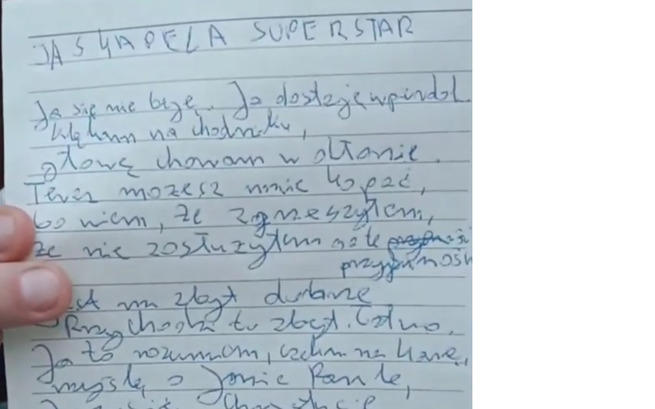 JAŚ KAPELA SUPERSTAR
Ja się nie biję. Ja dostaję wpierdol.
klękam na chodniku,
głowę chowam w dłonie.
Teraz możesz mnie kopać,
bo wiem, że zgrzeszyłem,
że nie zasłużyłem na te
przyjemnoś
mi zbyt dobrze
Przychodzi to zbyt łatwo.
Ja to rozumiem, czekam na karę,
myślę o Janie Pawle,